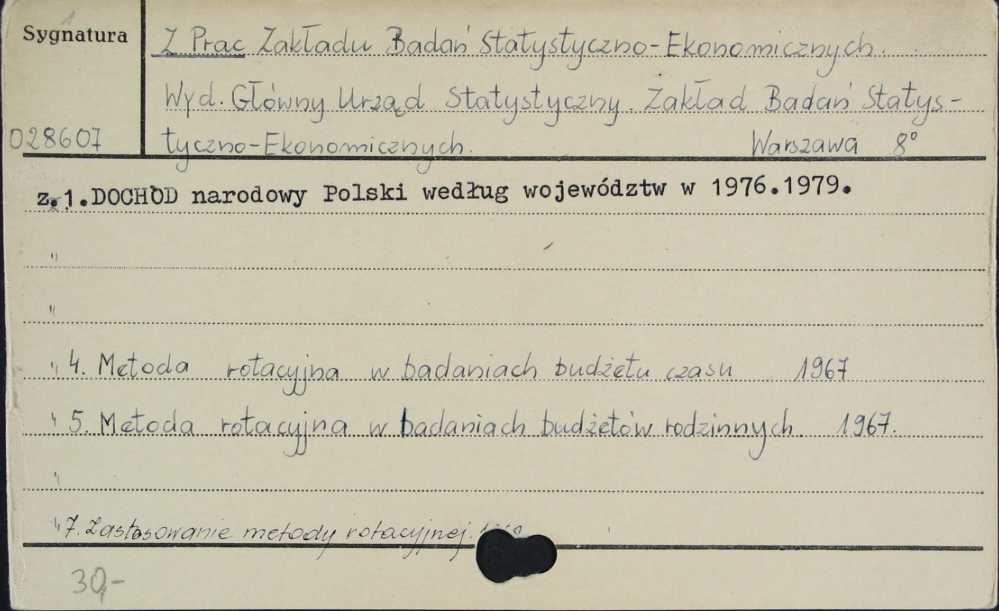 1
Sygnatura
Z Prac Zakładu Badań Statystyczno-Ekonomicznych.
Wyd. Główny Urząd Statystyczny. Zakład Badań Statys-
028607 tyczno-Ekonomicznych. Warszawa 8°
z.1.DOCHÓD narodowy Polski według województw w 1976.1979.
"
"
" 4. Metoda rotacyjna w badaniach budżetu czasu 1967
" 5. Metoda rotacyjna w badaniach budżetów rodzinnych. 1967.
"
" 7. Zastosowanie metody rotacyjnej.
30,-